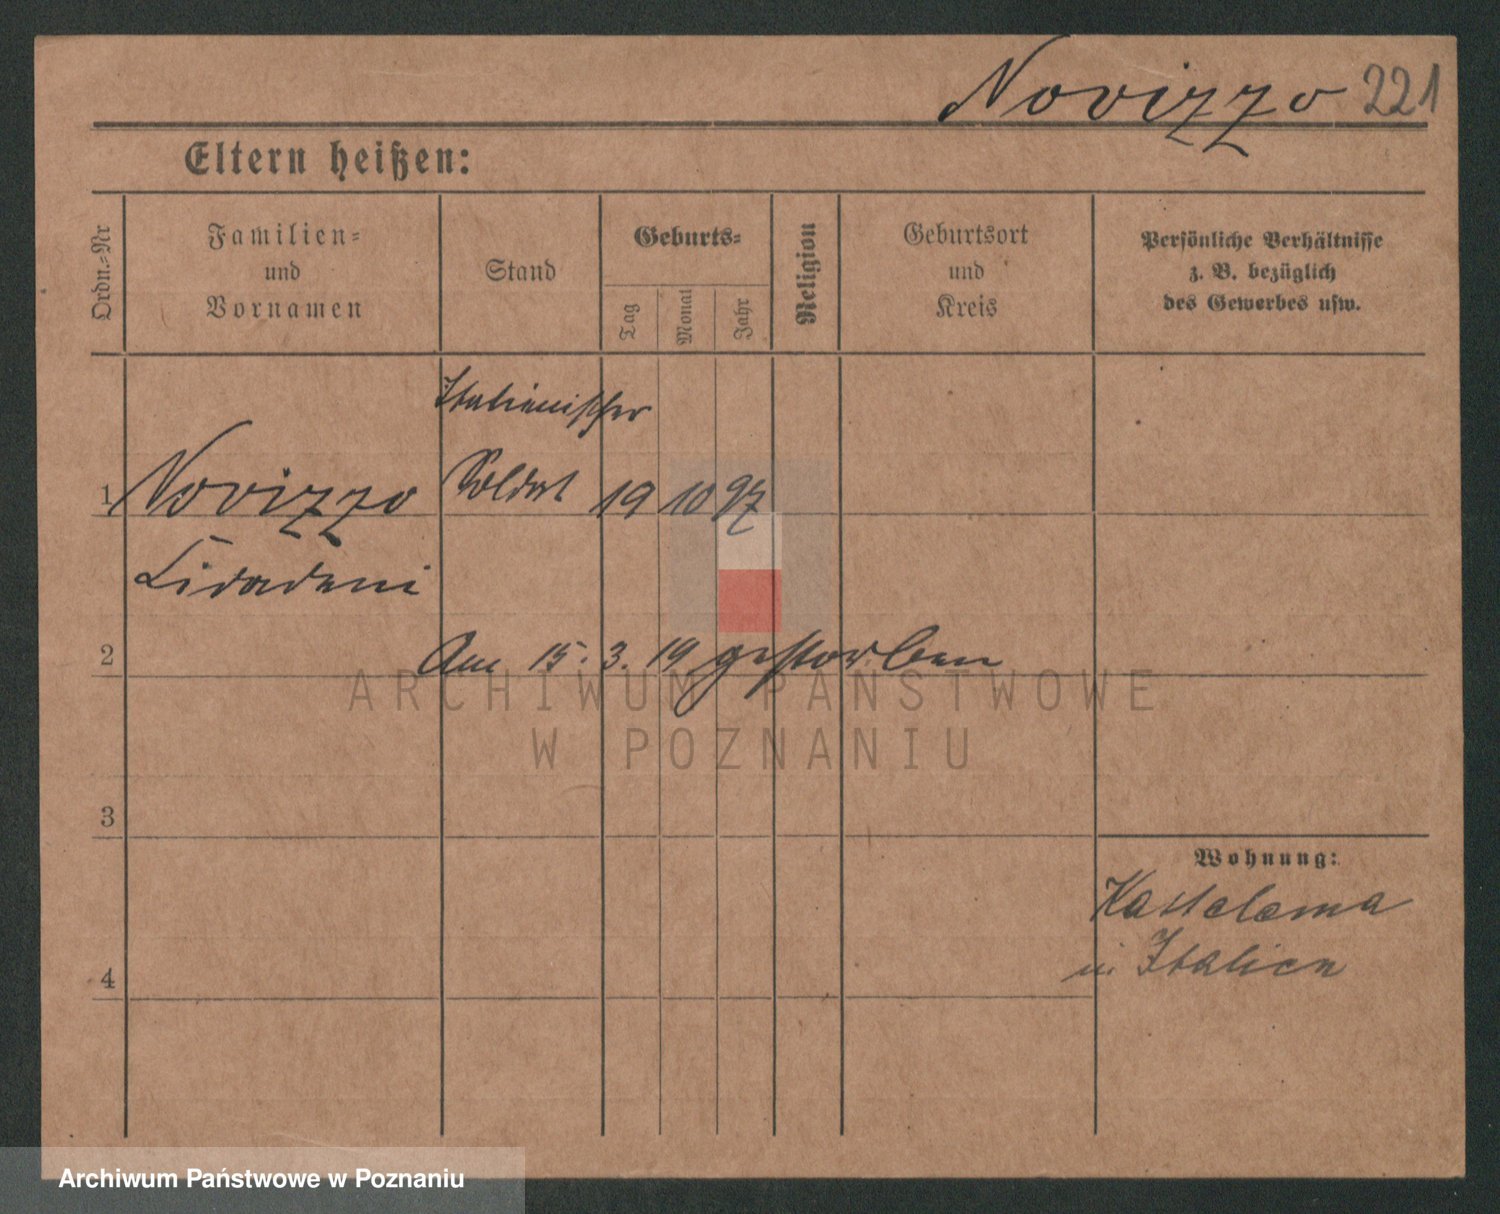 Novizzo 221
Eltern heißen:
Ordn.=Nr
Familien=
und
Vornamen
Stand
Geburts=
Tag
Monat
Jahr
Religion
Geburtsort
und
Kreis
Persönliche Verhältnisse
z. B. bezüglich
des Gewerbes usw.
Italienischer
1 Novizzo Soldat 19 10 97
2
Am 15. 3. 19 gestorben
ARCHIWUM PAŃSTWOWE
W POZNANIU
3
Wohnung:
in Italien
4
Archiwum Państwowe w Poznaniu